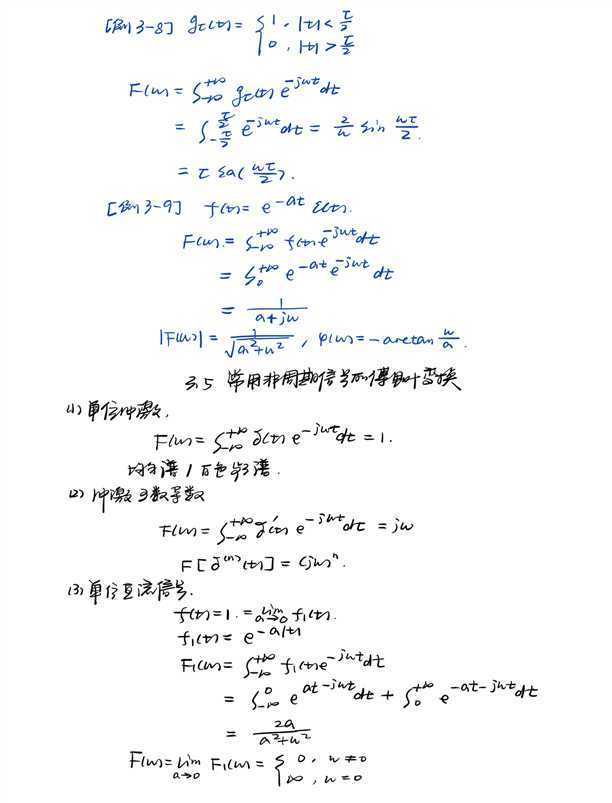 [例3-8] gτ(t) = { 1, |t| < τ/2
0, |t| > τ/2
F(w) = ∫_{-∞}^{+∞} gτ(t) e^{-jwt} dt
= ∫_{-τ/2}^{τ/2} e^{-jwt} dt = 2/w sin wτ/2.
= τ Sa(wτ/2).
[例3-9] f(t) = e^{-at} ε(t).
F(w) = ∫_{-∞}^{+∞} f(t) e^{-jwt} dt
= ∫_0^{+∞} e^{-at} e^{-jwt} dt
= 1/(a+jw)
|F(w)| = 1/√(a²+w²), φ(w) = -arctan w/a.
3.5 常用非周期信号的傅里叶变换
(1) 单位冲激.
F(w) = ∫_{-∞}^{+∞} δ(t) e^{-jwt} dt = 1.
均匀谱/白色频谱.
(2) 冲激函数导数
F(w) = ∫_{-∞}^{+∞} δ'(t) e^{-jwt} dt = jw
F[δ^{(n)}(t)] = (jw)^n.
(3) 单位直流信号.
f(t) = 1. = lim_{a→0} f₁(t).
f₁(t) = e^{-a|t|}
F₁(w) = ∫_{-∞}^{+∞} f₁(t) e^{-jwt} dt
= ∫_{-∞}^0 e^{at-jwt} dt + ∫_0^{+∞} e^{-at-jwt} dt
= 2a/(a²+w²)
F(w) = lim_{a→0} F₁(w) = { 0, w≠0
∞, w=0